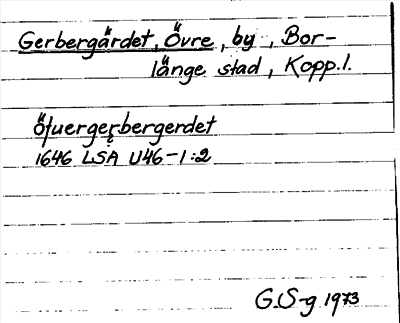 Gerbergärdet, Övre, by, Bor-
länge stad, Kopp.l.
Öfuergerbergerdet
1646 LSA U46-1:2
G.S-g. 1973